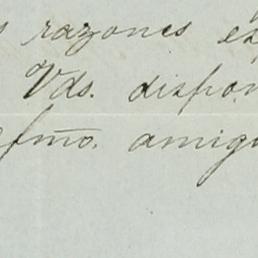 s razones es
Vds. dispon
afmo. amigo